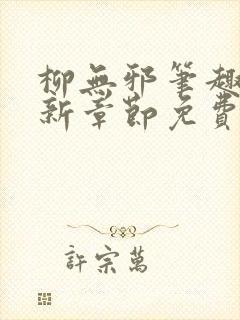 柳無邪筆趣
新章節免費
許宗萬